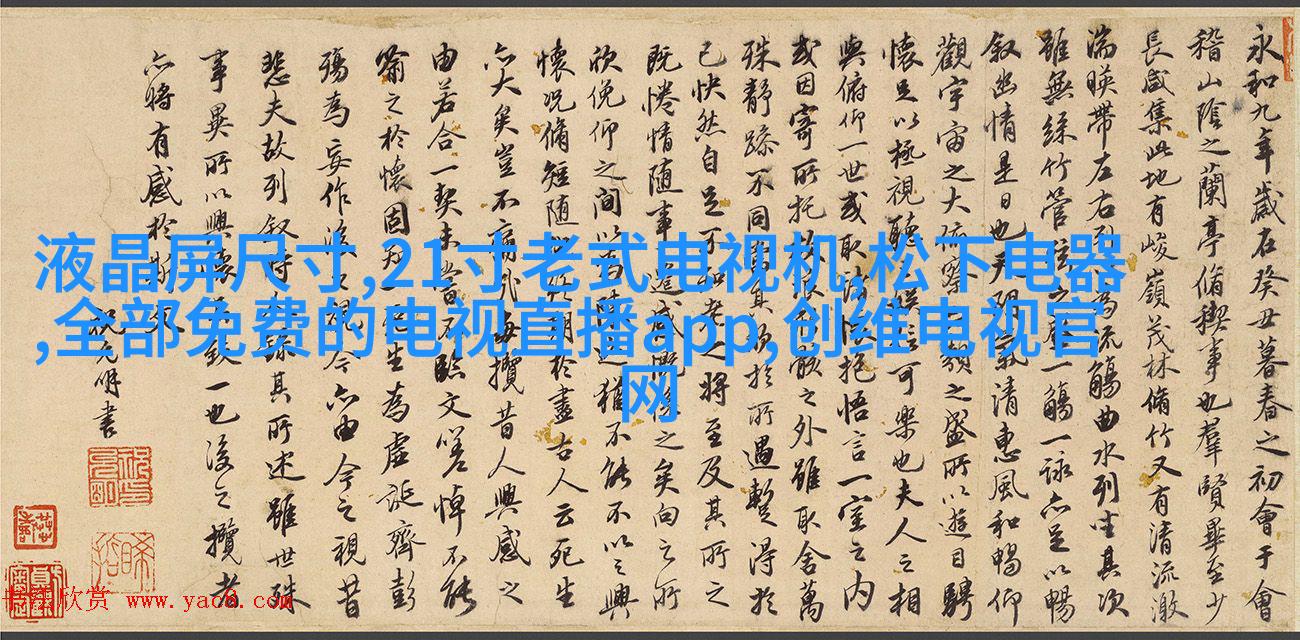 液晶屏尺寸,21寸老式电视机,松下电器
,全部免费的电视直播app,创维电视官
网
永和九年歲在癸丑暮春之初會于會
稽山陰之蘭亭脩稧事也羣賢畢至少
長咸集此地有峻嶺茂林脩竹又有清流激
湍暎帶左右引為流觴曲水列坐其次
雖無絲竹管弦之一觴一詠亦足以暢
叙幽情是日也天朗氣清惠風和暢仰
觀宇宙之大俯察類之盛所以遊目騁
懷足以極視聽娛信可樂也夫人之相
與俯仰一世或取諸懷抱悟言一室之內
或因寄所托放浪骸之外雖取舍萬
殊靜躁不同當其欣於所遇暫得於
已快然自足不知老之將至及其所之
既惓情隨事遷感慨係之矣向之所
欣俛仰之間以為陳迹猶不能不以之興
懷况脩短隨期於盡古人云死生
亦大矣豈不痛哉每攬昔人興感之
由若合一契未嘗不臨文嗟悼不能
喻之於懷固知死生為虛誕齊彭
殤為妄作後之視今亦由今之視昔
悲夫故列叙時錄其所述雖世殊
事異所以興懷致一也後之攬者
亦將有感於斯文
祝允明書
欣赏 www.yac8.com